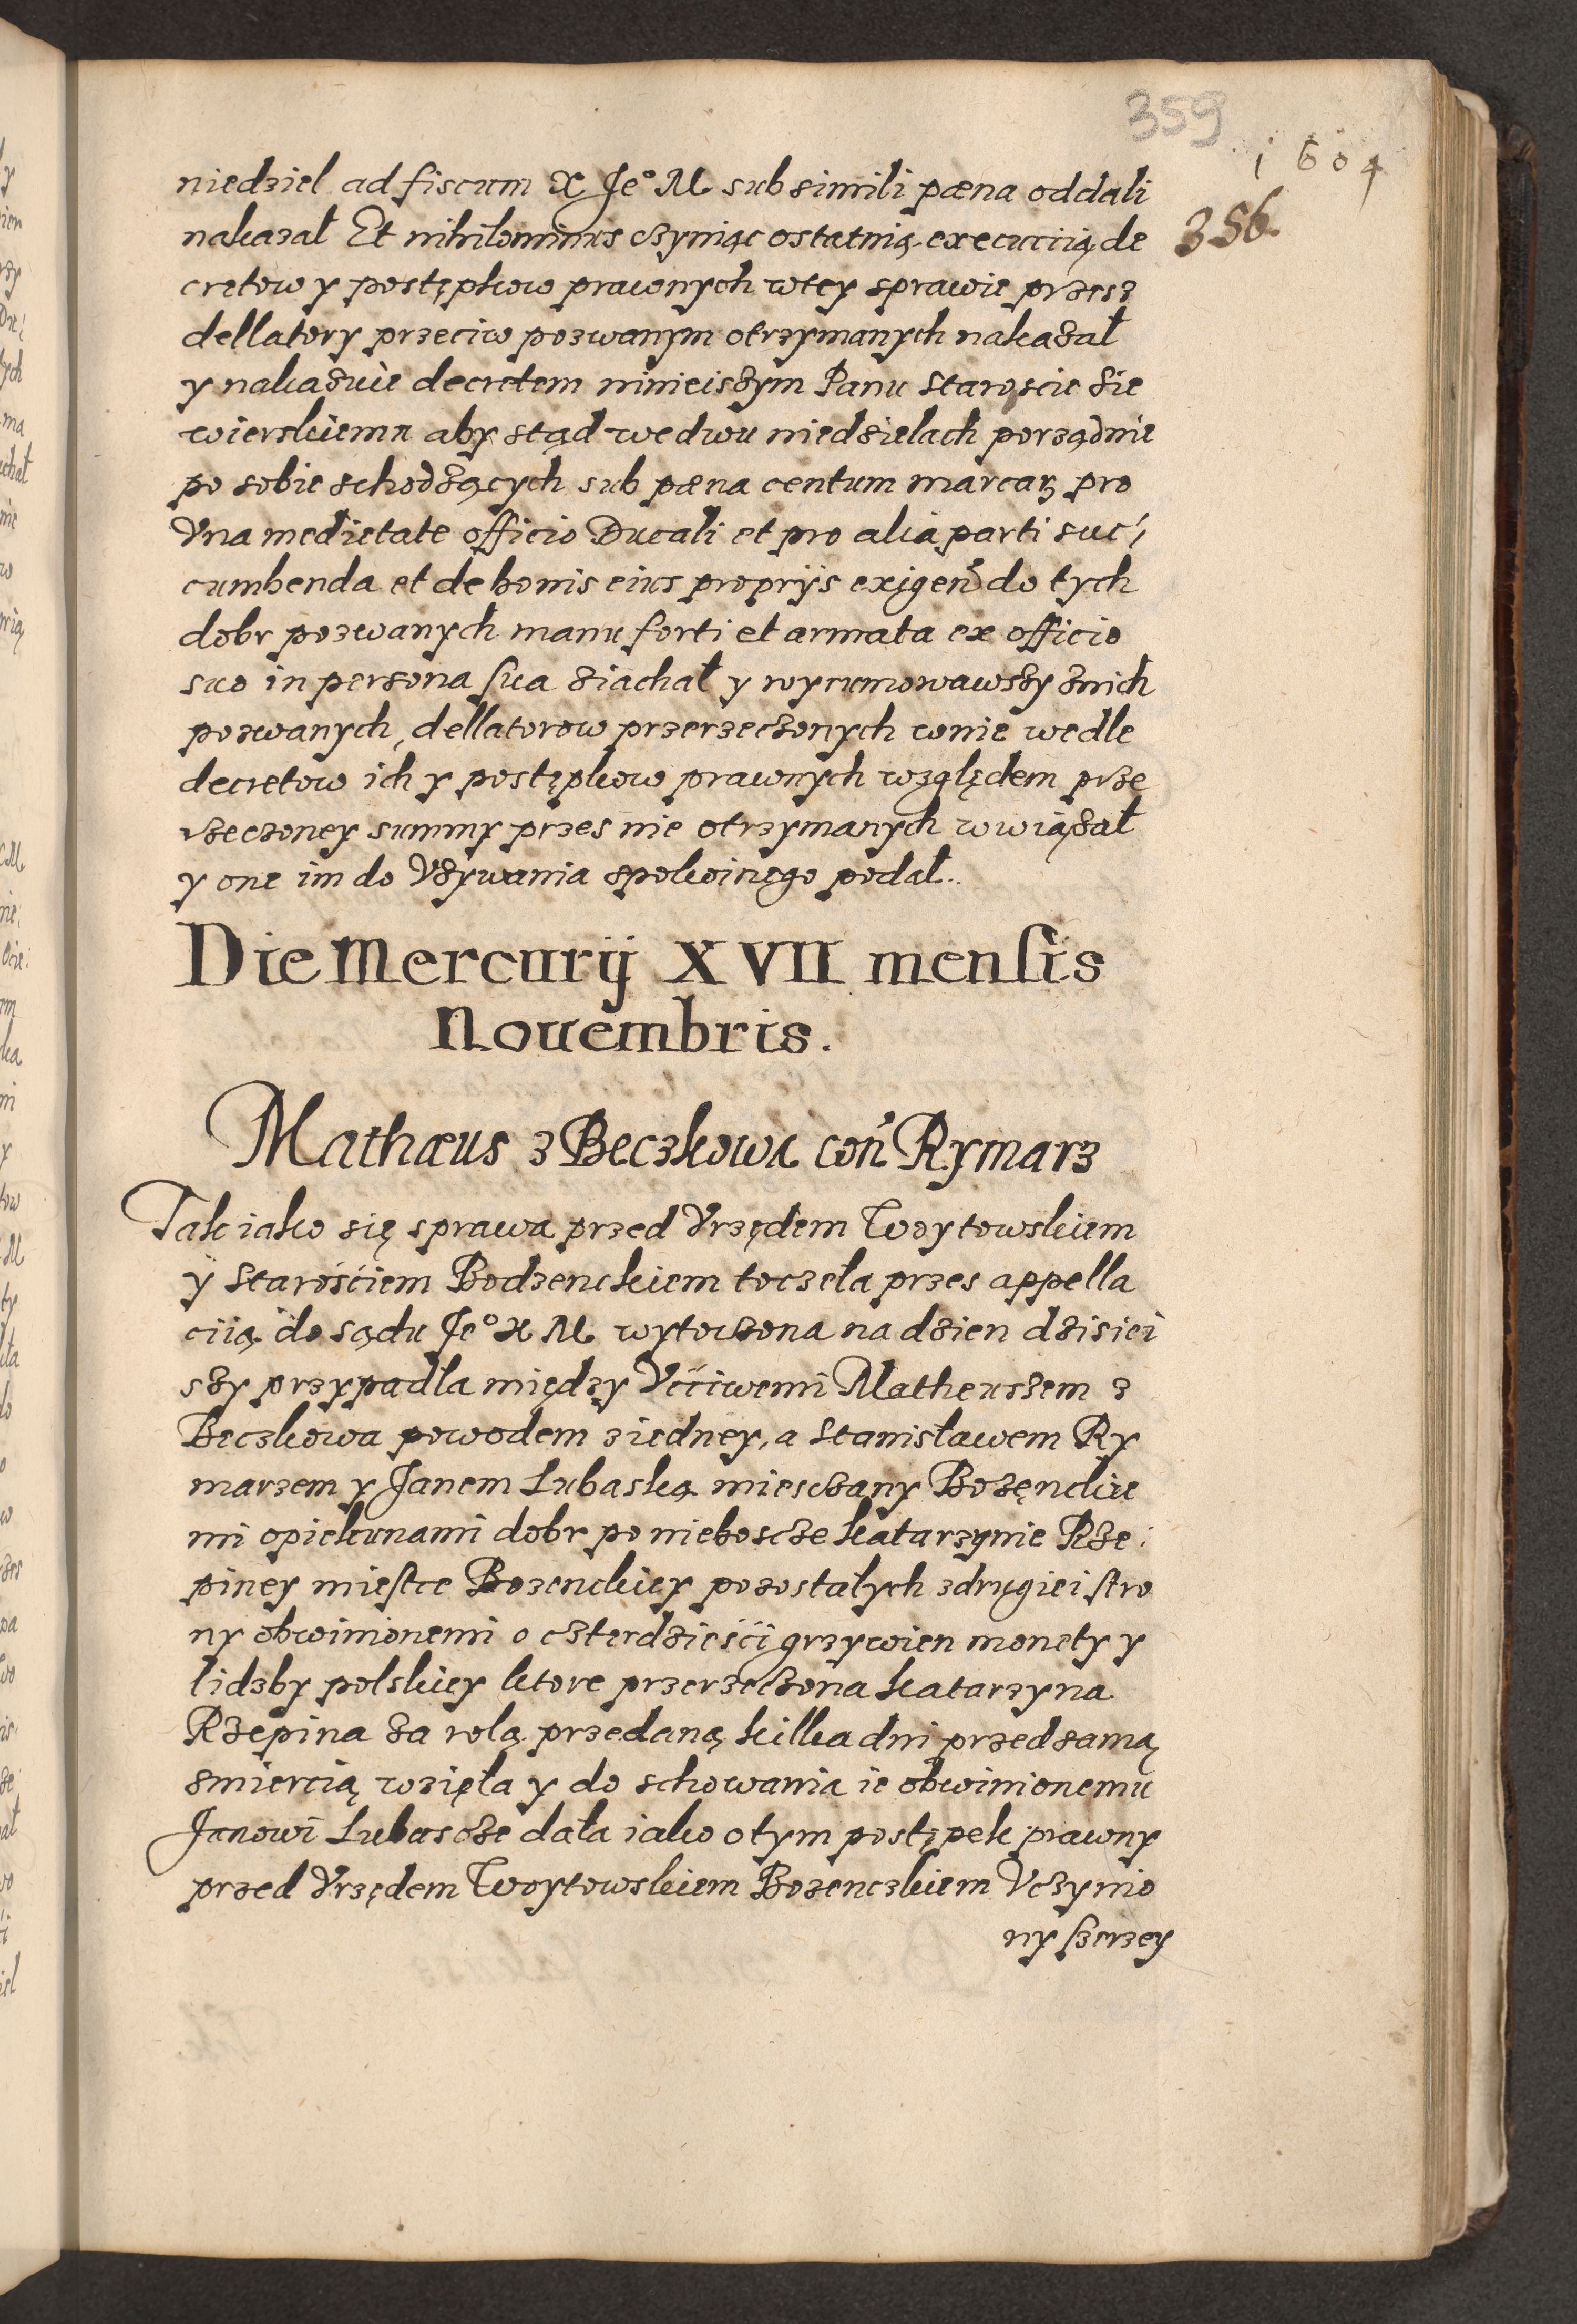 359
1604
356.
niedziel ad fiscum X Je° M sub simili pæna oddali
nakazał Et nihilominus czyniąc ostatnią execuciią de
cretow y postępkow prawnych wtey sprawie przesz
dellatory przeciw pozwanym otrzymanych nakazał
y nakazuie decretem ninieiszym Panu Staroscie Sie
wierskiemu aby stąd wedwu niedzielach porządnie
po sobie schodzących sub pæna centum marcaꝝ pro
Vna medietate officio Ducali et pro alia parti suc:
cumbenda et de bonis eius proprijs exigen̄ do tych
dobr pozwanych manu forti et armata ex officio
suo in persona sua ziachał y wyrumowawszy znich
pozwanych, dellatorow przerzeczonych wnie wedle
decretow ich y postępkow prawnych względem prze
rzeczoney summy przes nie otrzymanych wwiązał
y one im do Vzywania spokoinego podał..
Die Mercurij XVII mensis
Nouembris.
Mathæus z Beczkowa con̄ Rymarz
Tak iako się sprawa przed Vrzędem Woytowskiem
y Starościem Bodzenckiem toczeła przes appella
ciią do sądu Je° X M wytoczona na dzien dzisiei
szy przypadła między Vcciwemi Matheuszem z
Beczkowa powodem ziedney, a Stanisławem Ry
marzem y Janem Lubaską miesczany Bozęnckie
mi opiekunami dobr po nieboscze Katarzynie Rze:
piney miestce Bozenckiey pozostałych zdrugiei stro
ny obwinionemi o czterdzieści grzywien monety y
lidzby polskiey ktore przerzeczona Katarzyna
Rzepina za rolą przedaną kilka dni przed samą
smiercią wzięła y do schowania ie obwinionemu
Janowi Lubascze dała iako otym postępek prawny
przed Vrzędem Woytowskiem Bozenczkiem Vczynio
ny szerzey